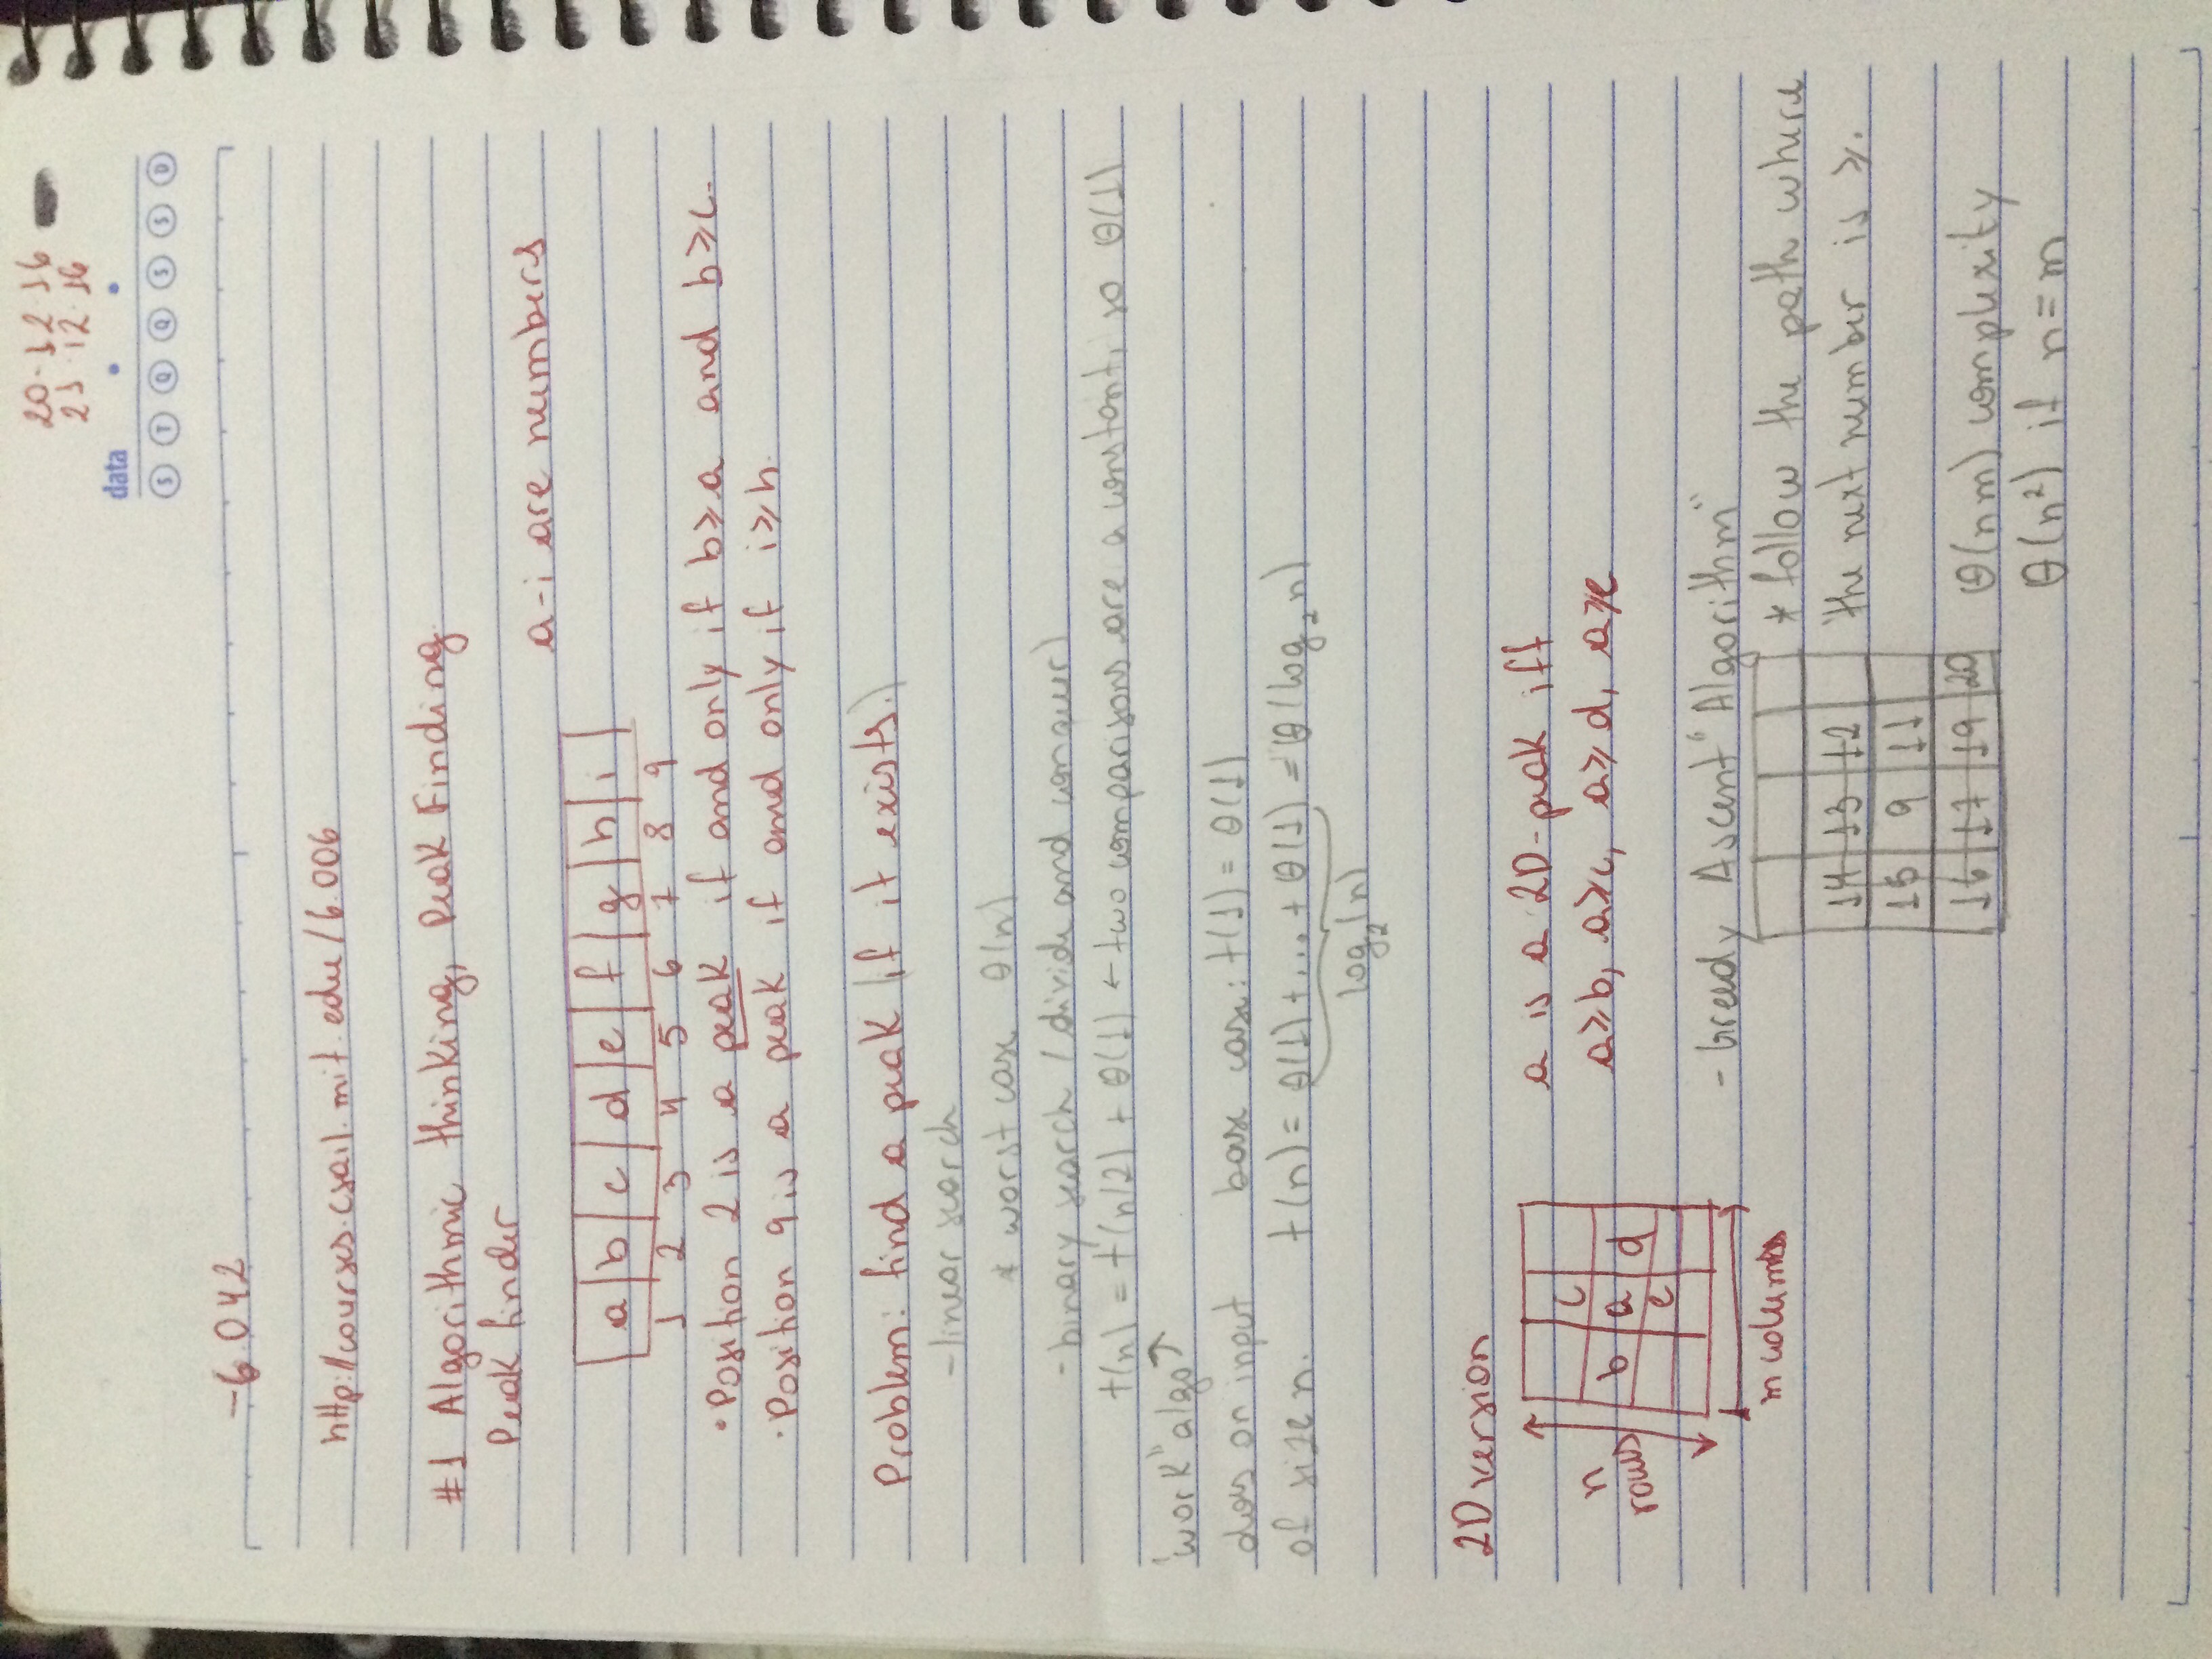 20-12 16
21 12 16
data
S T Q Q S S D
-6.042
http://courses.csail.mit.edu/6.006
#1 Algorithmic thinking, Peak Finding
Peak finder
a-i are numbers
a b c d e f g h i
1 2 3 4 5 6 7 8 9
• Position 2 is a peak if and only if b≥a and b≥c.
• Position 9 is a peak if and only if i≥h.
Problem: find a peak (if it exists.)
- linear search
* worst case θ(n)
- binary search (divide and conquer)
t(n) = t(n/2) + θ(1) ← two comparisons are a constant, so θ(1)
"work" algo ↑
does on input base case: t(1) = θ(1)
of size n. t(n) = θ(1)+...+θ(1) = θ(log₂ n)
log₂(n)
2D version
a is a 2D-peak iff
a≥b, a≥c, a≥d, a≥e
c
b a d
e
n
rows
m columns
- Greedy Ascent "Algorithm"
* follow the path where
the next number is ≥.
14 13 12
15 9 11
16 17 19 20
θ(nm) complexity
θ(n²) if n=m